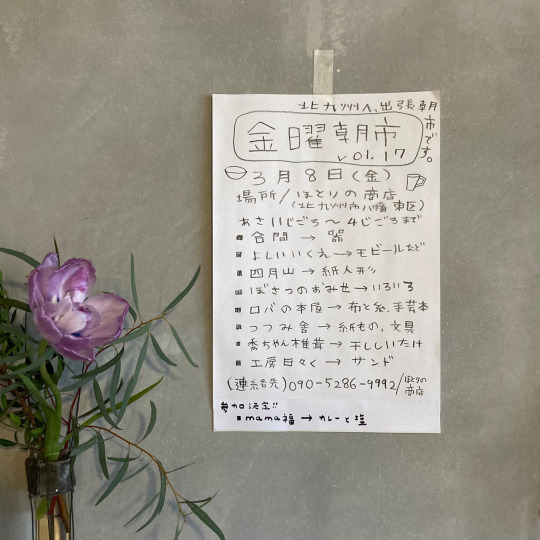 北九州へ、出張朝市です。
金曜朝市
vol.17
3月8日(金)
場所/ほとりの商店
(北九州市八幡東区)
あさ11じごろ〜4じごろまで
合間→器
よしいいくえ→モビールなど
四月山→紙人形
ぼさつのおみせ→いろいろ
ロバの本屋→布と糸、手芸本
つつみ舎→紙もの、文具
秀ちゃん椎茸→干ししいたけ
工房日々く→サンド
(連絡先)090-5286-9992/ほとりの商店
参加決定!!
mama福→カレーと塩